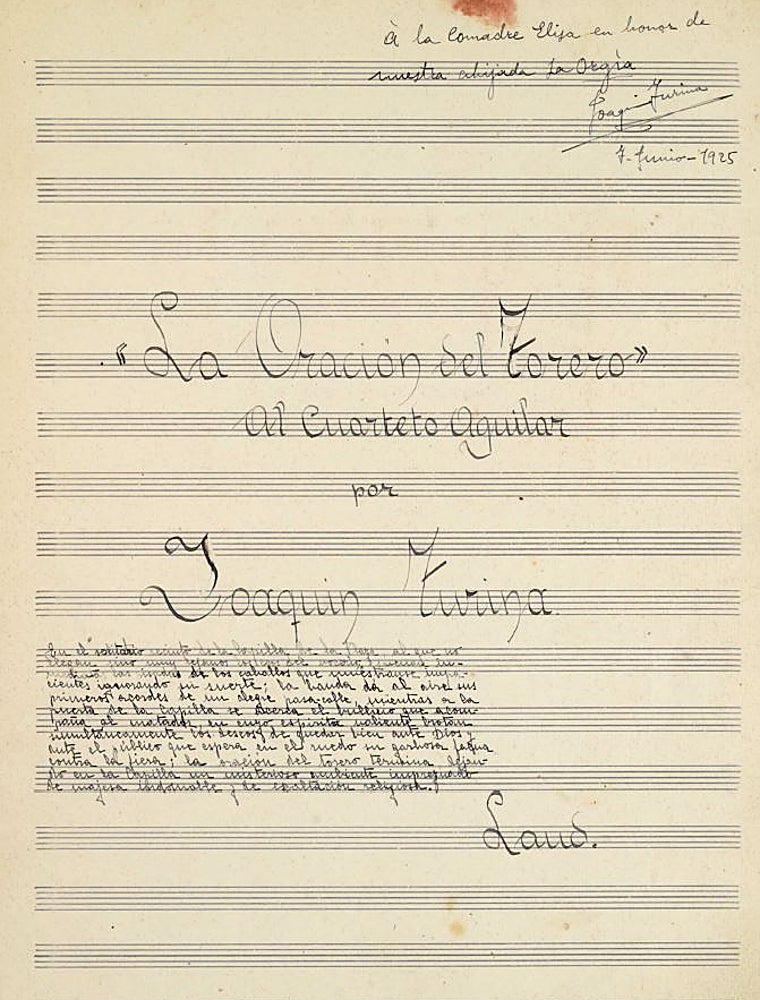 À la Comadre Elisa en honor de
nuestra ahijada La Orgía
Joaquin Turina
7-Junio-1925
«La Oración del Torero»
Al Cuarteto Aguilar
por
Joaquin Turina.
En el solitario recinto de la Capilla de la Plaza, al que no
llegan sino muy lejanos del
las de los caballos que muéstranse impa-
cientes ignorando su suerte; la banda dá al aire sus
primeros acordes de un alegre pasa-calle, mientras a la
puerta de la Capilla se acerca el bullicio que acom-
paña al matador, en cuyo espíritu valiente brotan
simultáneamente los deseos de quedar bien ante Dios y
ante el público que espera en el ruedo su garbosa faena
contra la fiera; la oración del torero termina dejan-
do en la Capilla un misterioso ambiente impregnado
de majeza indomable y de exaltación religiosa.
Laud.